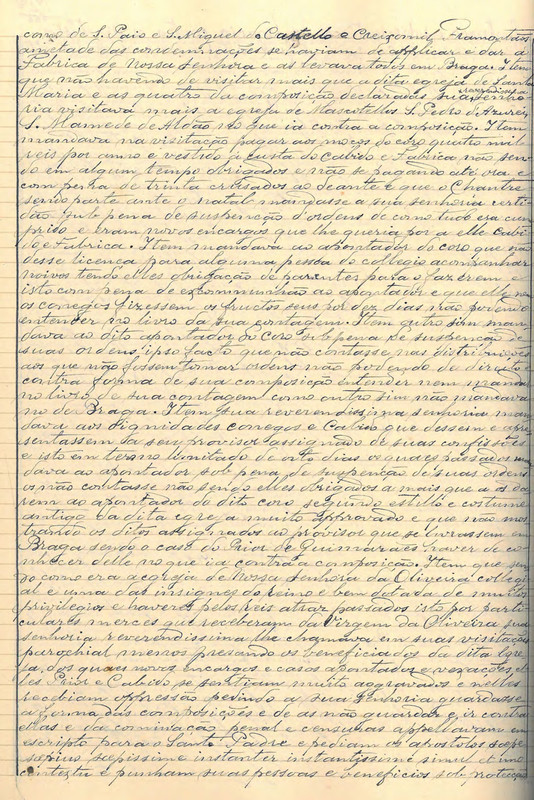 como de S. Paio e S. Miguel do Castello e Creixomil, Framontãos
ametade das condemnações se haviam de applicar e dar á
Fabrica de Nossa Senhora e as levava todas em Braga. Item
que não havendo de visitar mais que a dita egreja de Santa
Maria e as quatro da composição declaradas sua reverendissima senho-
ria visitava mais a egreja de Mascotellos S. Pedro de Azurei,
S. Mamede de Aldão no que ia contra a composição. Item
mandava na visitação pagar aos moços do coro quatro mil
reis por anno e vestido á custa do Cabido e Fabrica não sen-
do em algum tempo obrigados e não se pagando até ora e
com pena de trinta cruzados ao deante e que o Chantre
sendo parte ante o natal mandasse a sua senhoria certi-
dão sub pena de suspenção d'ordens de como tudo era cum
prido e eram novos encargos que lhe queria por a elle cabi-
do e Fabrica. Item mandava ao apontador do coro que não
desse licença para alguma pessoa do collegio acompanhar
noivos tendo elles obrigação de parentes para o fazerem e
isto com pena de excommunhão ao apontador e que elle nem
os conegos fizessem os fructos seus por dez dias não podendo
entender no livro da sua contagem. Item outro sim man-
dava ao dito apontador do coro sob pena de suspenção de
suas ordens ipso facto que não contasse nas distribuições
aos que não fossem tomar ordens não podendo de direito e
contra forma de sua composição entender nem mandar
no livro de sua contagem como outro sim não mandava
no de Braga. Item sua reverendissima senhoria man
dava aos dignidades conegos e Cabido que dessem e apre
sentassem da seu provisor assignado de suas confissões
e isto em termo limitado de oito dias os quaes passados man
dava ao apontador sob pena de suspenção de suas ordens
os não contasse não sendo elles obrigados a mais que a os da
rem ao apontador do dito coro segundo estillo e costume
antigo da dita egreja muito approvado e que não mos
trando os ditos assignados ao provisor que se livrassem em
Braga sendo o caso do Prior de Guimarães haver de co-
nhecer delle no que ia contra a composição. Item que sen
do como era a egreja de Nossa Senhora da Oliveira collegi
al e uma das insignes do Reino e bem dotada de muitos
privilegios e haveres pelos Reis atraz passados isto por parti
culares merces que receberam da Virgem da Oliveira sua
senhoria reverendissima lhe chamava em suas visitações
parochial menos presando os beneficiados da dita Egre
ja, dos quaes novos encargos e casos apontados e vexações el
les Prior e Cabido se sentiam muito aggravados e nelles
recebiam oppressão pedindo a sua senhoria guardasse
a forma das composições e de as não guardar e ir contra
ellas e da cominação penal e censuras appellavam em
escripto para o Santo Padre e pediam os apostolos sæpe
sæpius sæpissime instanter instantissime simul et uno
contextu e punham suas pessoas e beneficios sob protecção